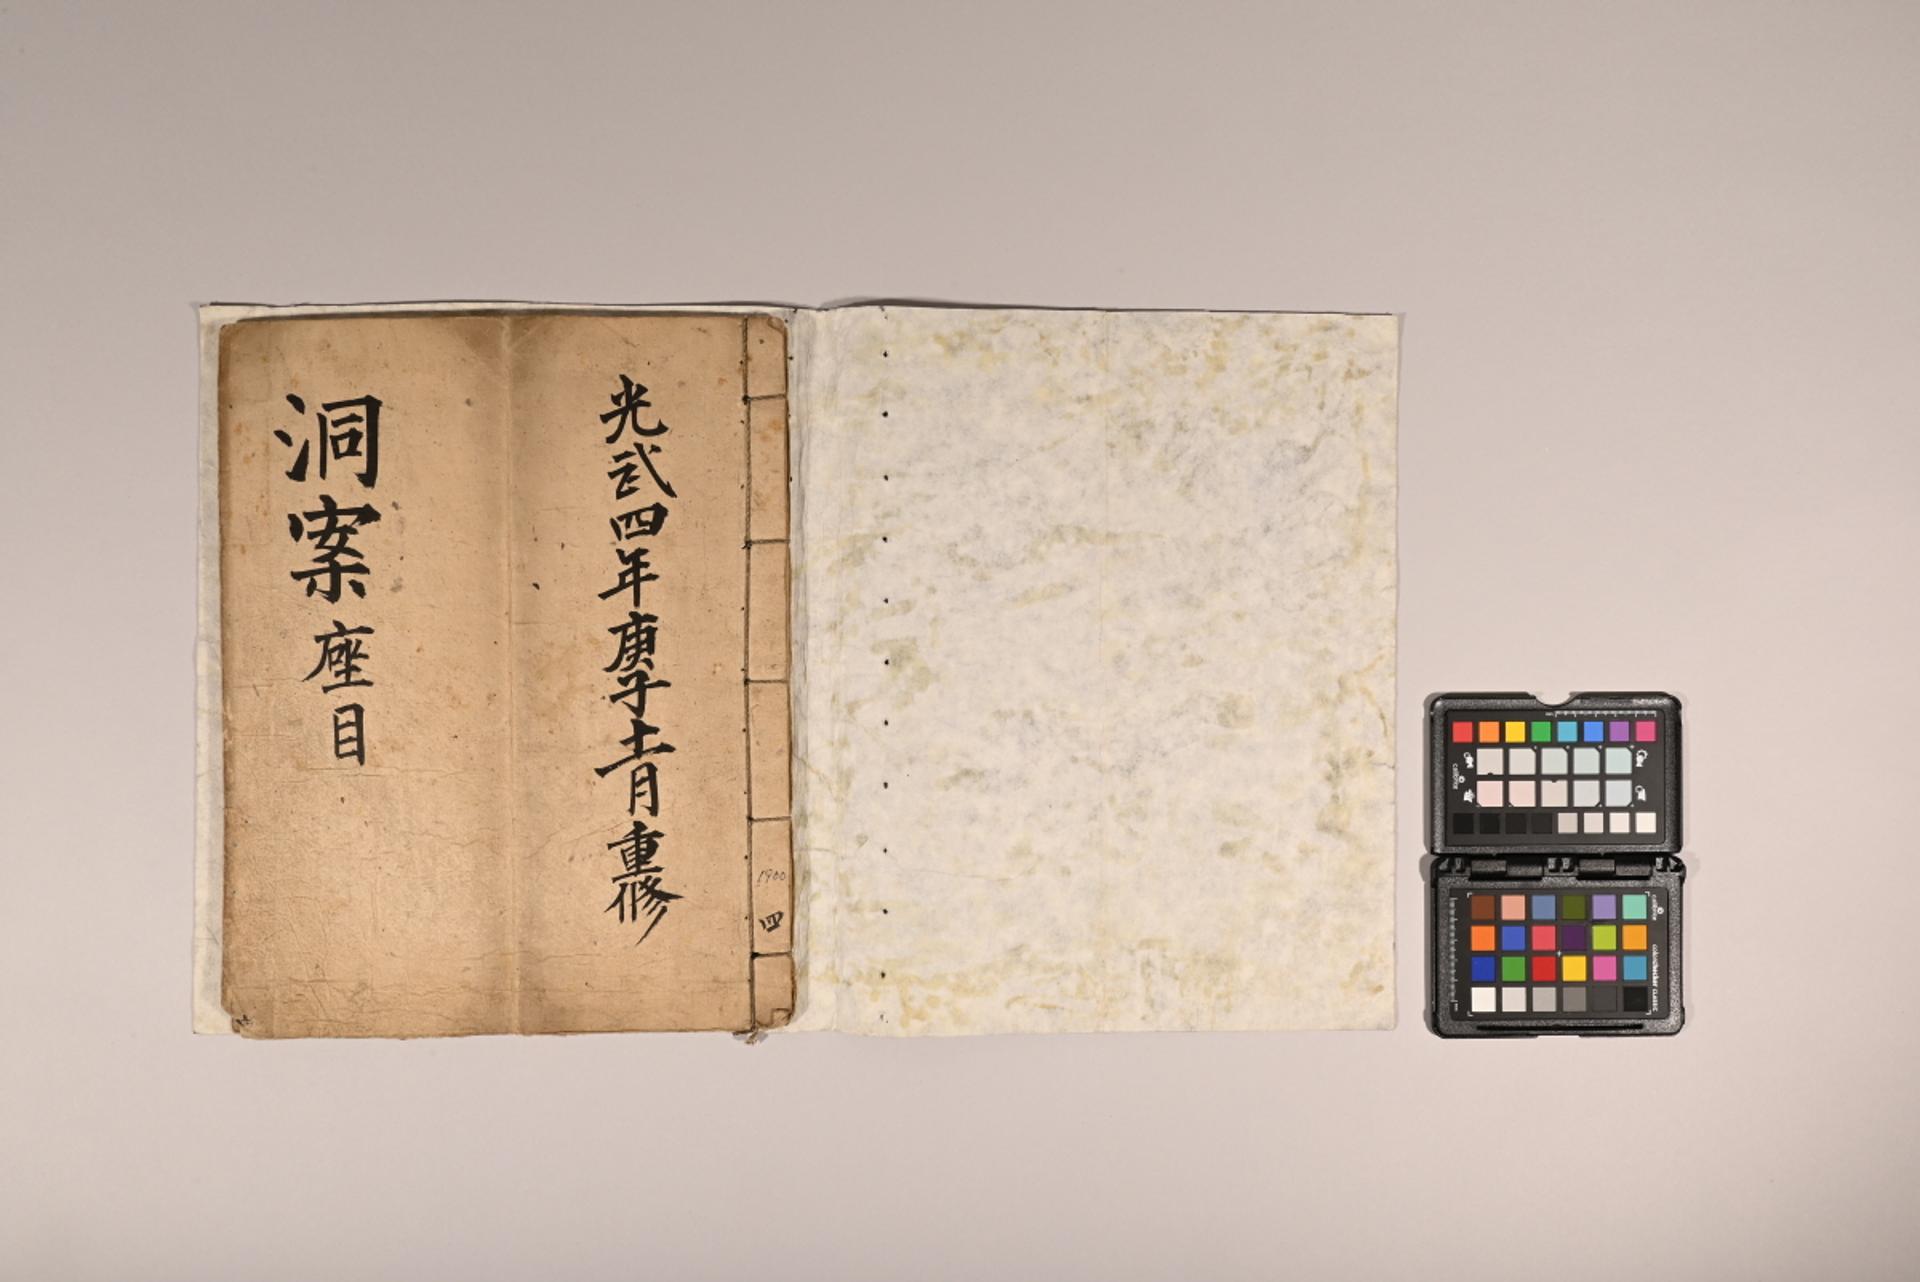 光武四年庚子十一月重修
洞案座目
1900
四
calibrite
colorchecker CLASSIC